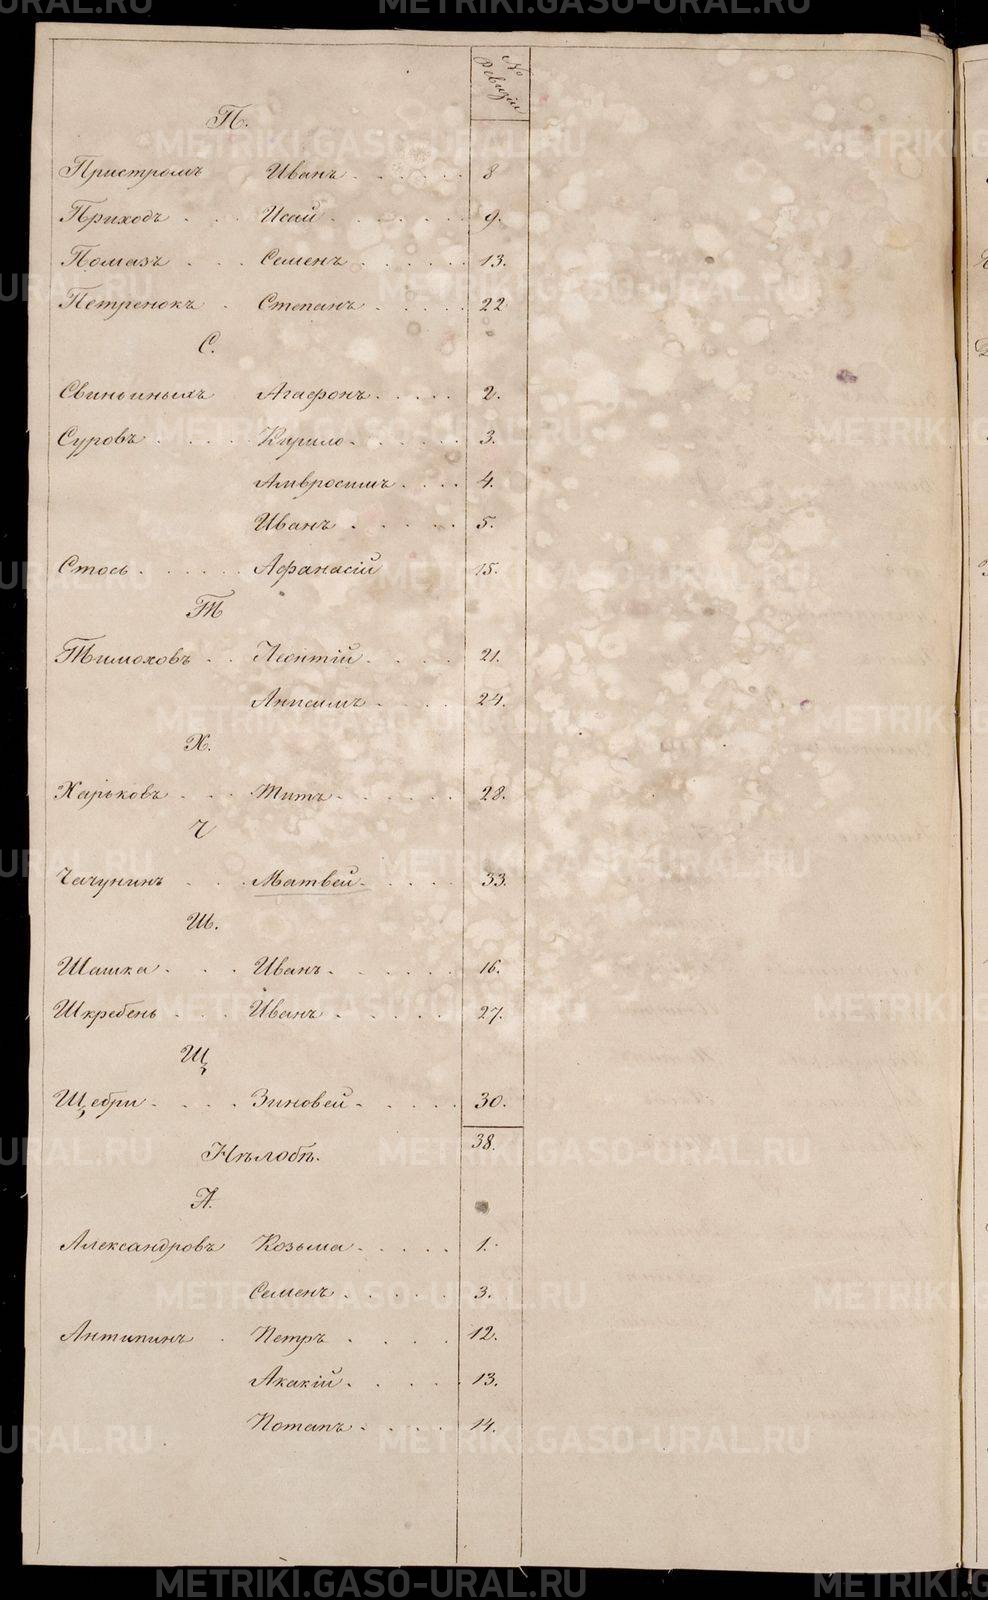 № Ревизіи
П.
Пристромъ Иванъ 8
Приходъ Исай 9.
Помазъ Семенъ 13.
Петренокъ Степанъ 22
С.
Свиньиныхъ Агафонъ 2.
Суровъ Кирило 3.
Амвросимъ 4.
Иванъ 5.
Стось Афанасій 15.
Т
Тимоховъ Леонтій 21.
Анисимъ 24.
Х.
Харьковъ Титъ 28.
Ч
Чачунинъ Матвей 33.
Ш.
Шашка Иванъ 16.
Шкребень Иванъ 27.
Щ
Щебри Зиновей 30.
38.
А.
Александровъ Козьма 1.
Семенъ 3.
Антипинъ Петръ 12.
Акакій 13.
Потапъ 14.
METRIKI.GASO-URAL.RU